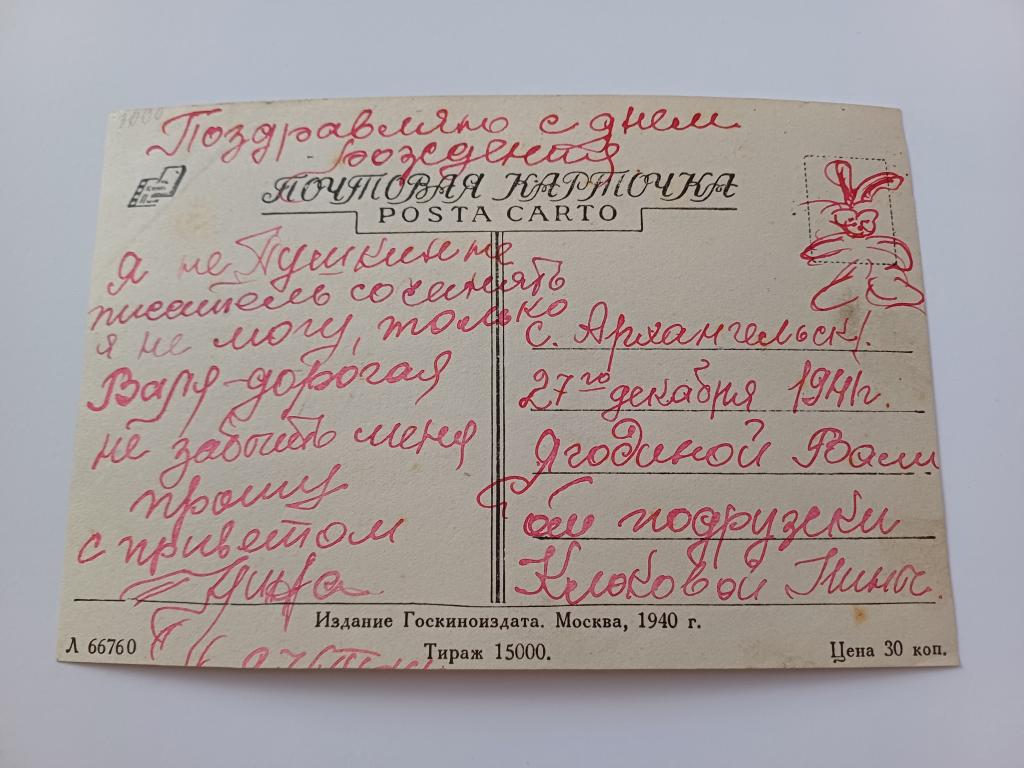 Поздравляю с днем
рождения
ПОЧТОВАЯ КАРТОЧКА
POSTA CARTO
Я не Пушкин не
писатель сочинять
я не могу, только
Варя-дорогая
не забыть меня
прошу
с приветом
Нина
с. Архангельск
27го декабря 1941г.
Ягодиной Вали
от подружки
Клоковой Нины.
Издание Госкиноиздата. Москва, 1940 г.
Л 66760
Тираж 15000.
Цена 30 коп.